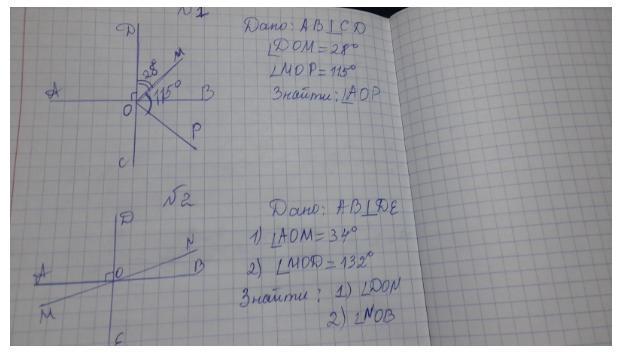 №1
Дано: AB⊥CD
∠DOM=28°
∠MOP=115°
Знайти: ∠AOP
D
M
28°
A
115°
B
O
P
C
№2
Дано: AB⊥DE
1) ∠AOM=34°
2) ∠MOD=132°
Знайти: 1) ∠DON
2) ∠NOB
D
N
A
O
B
M
E